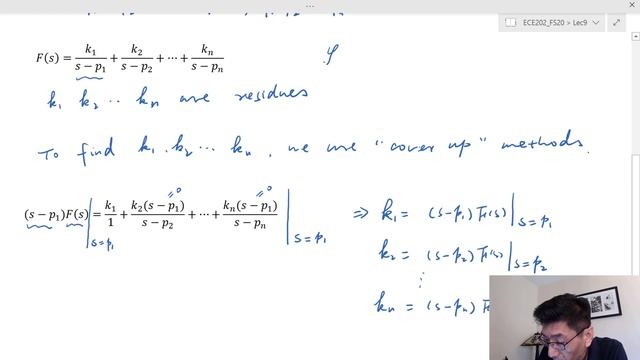 ECE202_FS20 > Lec9
F(s) = k₁/(s−p₁) + k₂/(s−p₂) + ⋯ + kₙ/(s−pₙ)
k₁ k₂ ·· kₙ are residues
To find k₁, k₂ ··· kₙ, we use "cover up" methods.
(s−p₁)F(s)|s=p₁ = k₁/1 + k₂(s−p₁)/(s−p₂) + ⋯ + kₙ(s−p₁)/(s−pₙ) |s=p₁ ⇒ k₁ = (s−p₁) F(s)|s=p₁
=0 =0
k₂ = (s−p₂) F(s)|s=p₂
⋮
kₙ = (s−pₙ) F